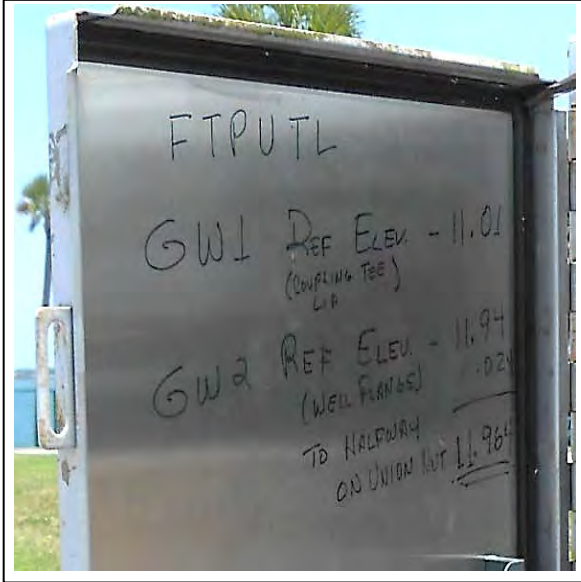 FTPUTL
GW1 REF ELEV. - 11.01
(COUPLING TEE)
LIP
GW2 REF ELEV. - 11.94
(WELL FLANGE) .024
TO HALFWAY
ON UNION NUT 11.964